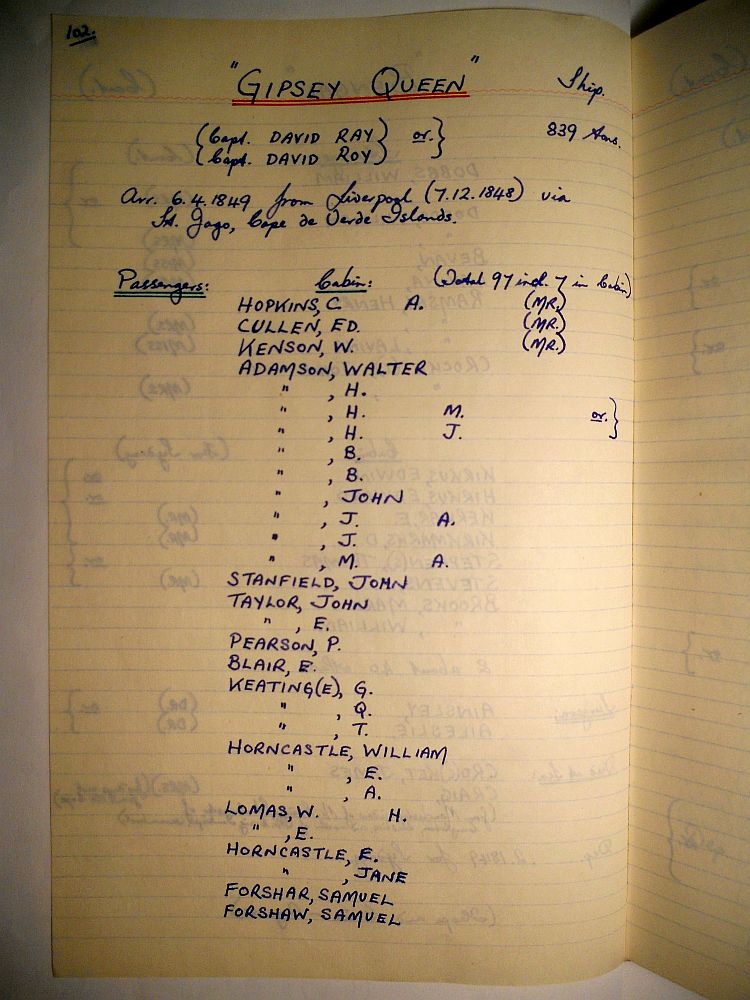 102.
"GIPSEY QUEEN" Ship.
{Capt. DAVID RAY} or.} 839 tons.
{Capt. DAVID ROY}
Arr. 6.4.1849 from Liverpool (7.12.1848) via
St. Jago, Cape de Verde Islands.
Passengers: Cabin: (Total 97 incl. 7 in Cabin)
HOPKINS, C. A. (MR.)
CULLEN, ED. (MR.)
KENSON, W. (MR.)
ADAMSON, WALTER
" , H.
" , H. M. or.}
" , H. J.
" , B.
" , B.
" , JOHN
" , J. A.
" , J.
" , M. A.
STANFIELD, JOHN
TAYLOR, JOHN
" , E.
PEARSON, P.
BLAIR, E.
KEATING(E), G.
" , Q.
" , T.
HORNCASTLE, WILLIAM
" , E.
" , A.
LOMAS, W. H.
" , E.
HORNCASTLE, E.
" , JANE
FORSHAR, SAMUEL
FORSHAW, SAMUEL